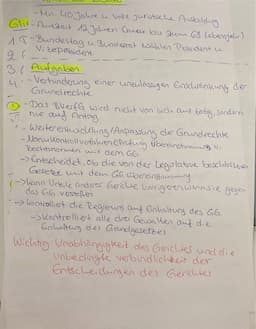 - Min. 40 Jahre u. volle juristische Ausbildung
GG - Amtszeit 12 Jahren (max bis zum 68 Lebensjahr)
1. 5 - Bundestag u. Bundesrat wählen Präsident u.
2 ( Vizepräsident
3 ( Aufgaben
4 - Verhinderung einer unzulässigen Einschränkung der
Grundrechte
- Das BVerfG wird nicht von sich aus tätig, sondern
nur auf Antrag
- Weiterentwicklung/Anpassung der Grundrechte
- Normenkontrollverfahren (Prüfung
mit dem GG
-> Entscheidet, ob die von der Legislative beschlossenen
Gesetze mit dem GG
-> kann Urteile anderer Gerichte gegen
das GG verstößt
-> kontrolliert die Regierung auf Einhaltung des GG
-> kontrolliert alle drei Gewalten auf die
Einhaltung des Grundgesetzes
Wichtig Unabhängigkeit des Gerichtes und die
Unbedingte verbindlichkeit der
Entscheidungen des Gerichtes